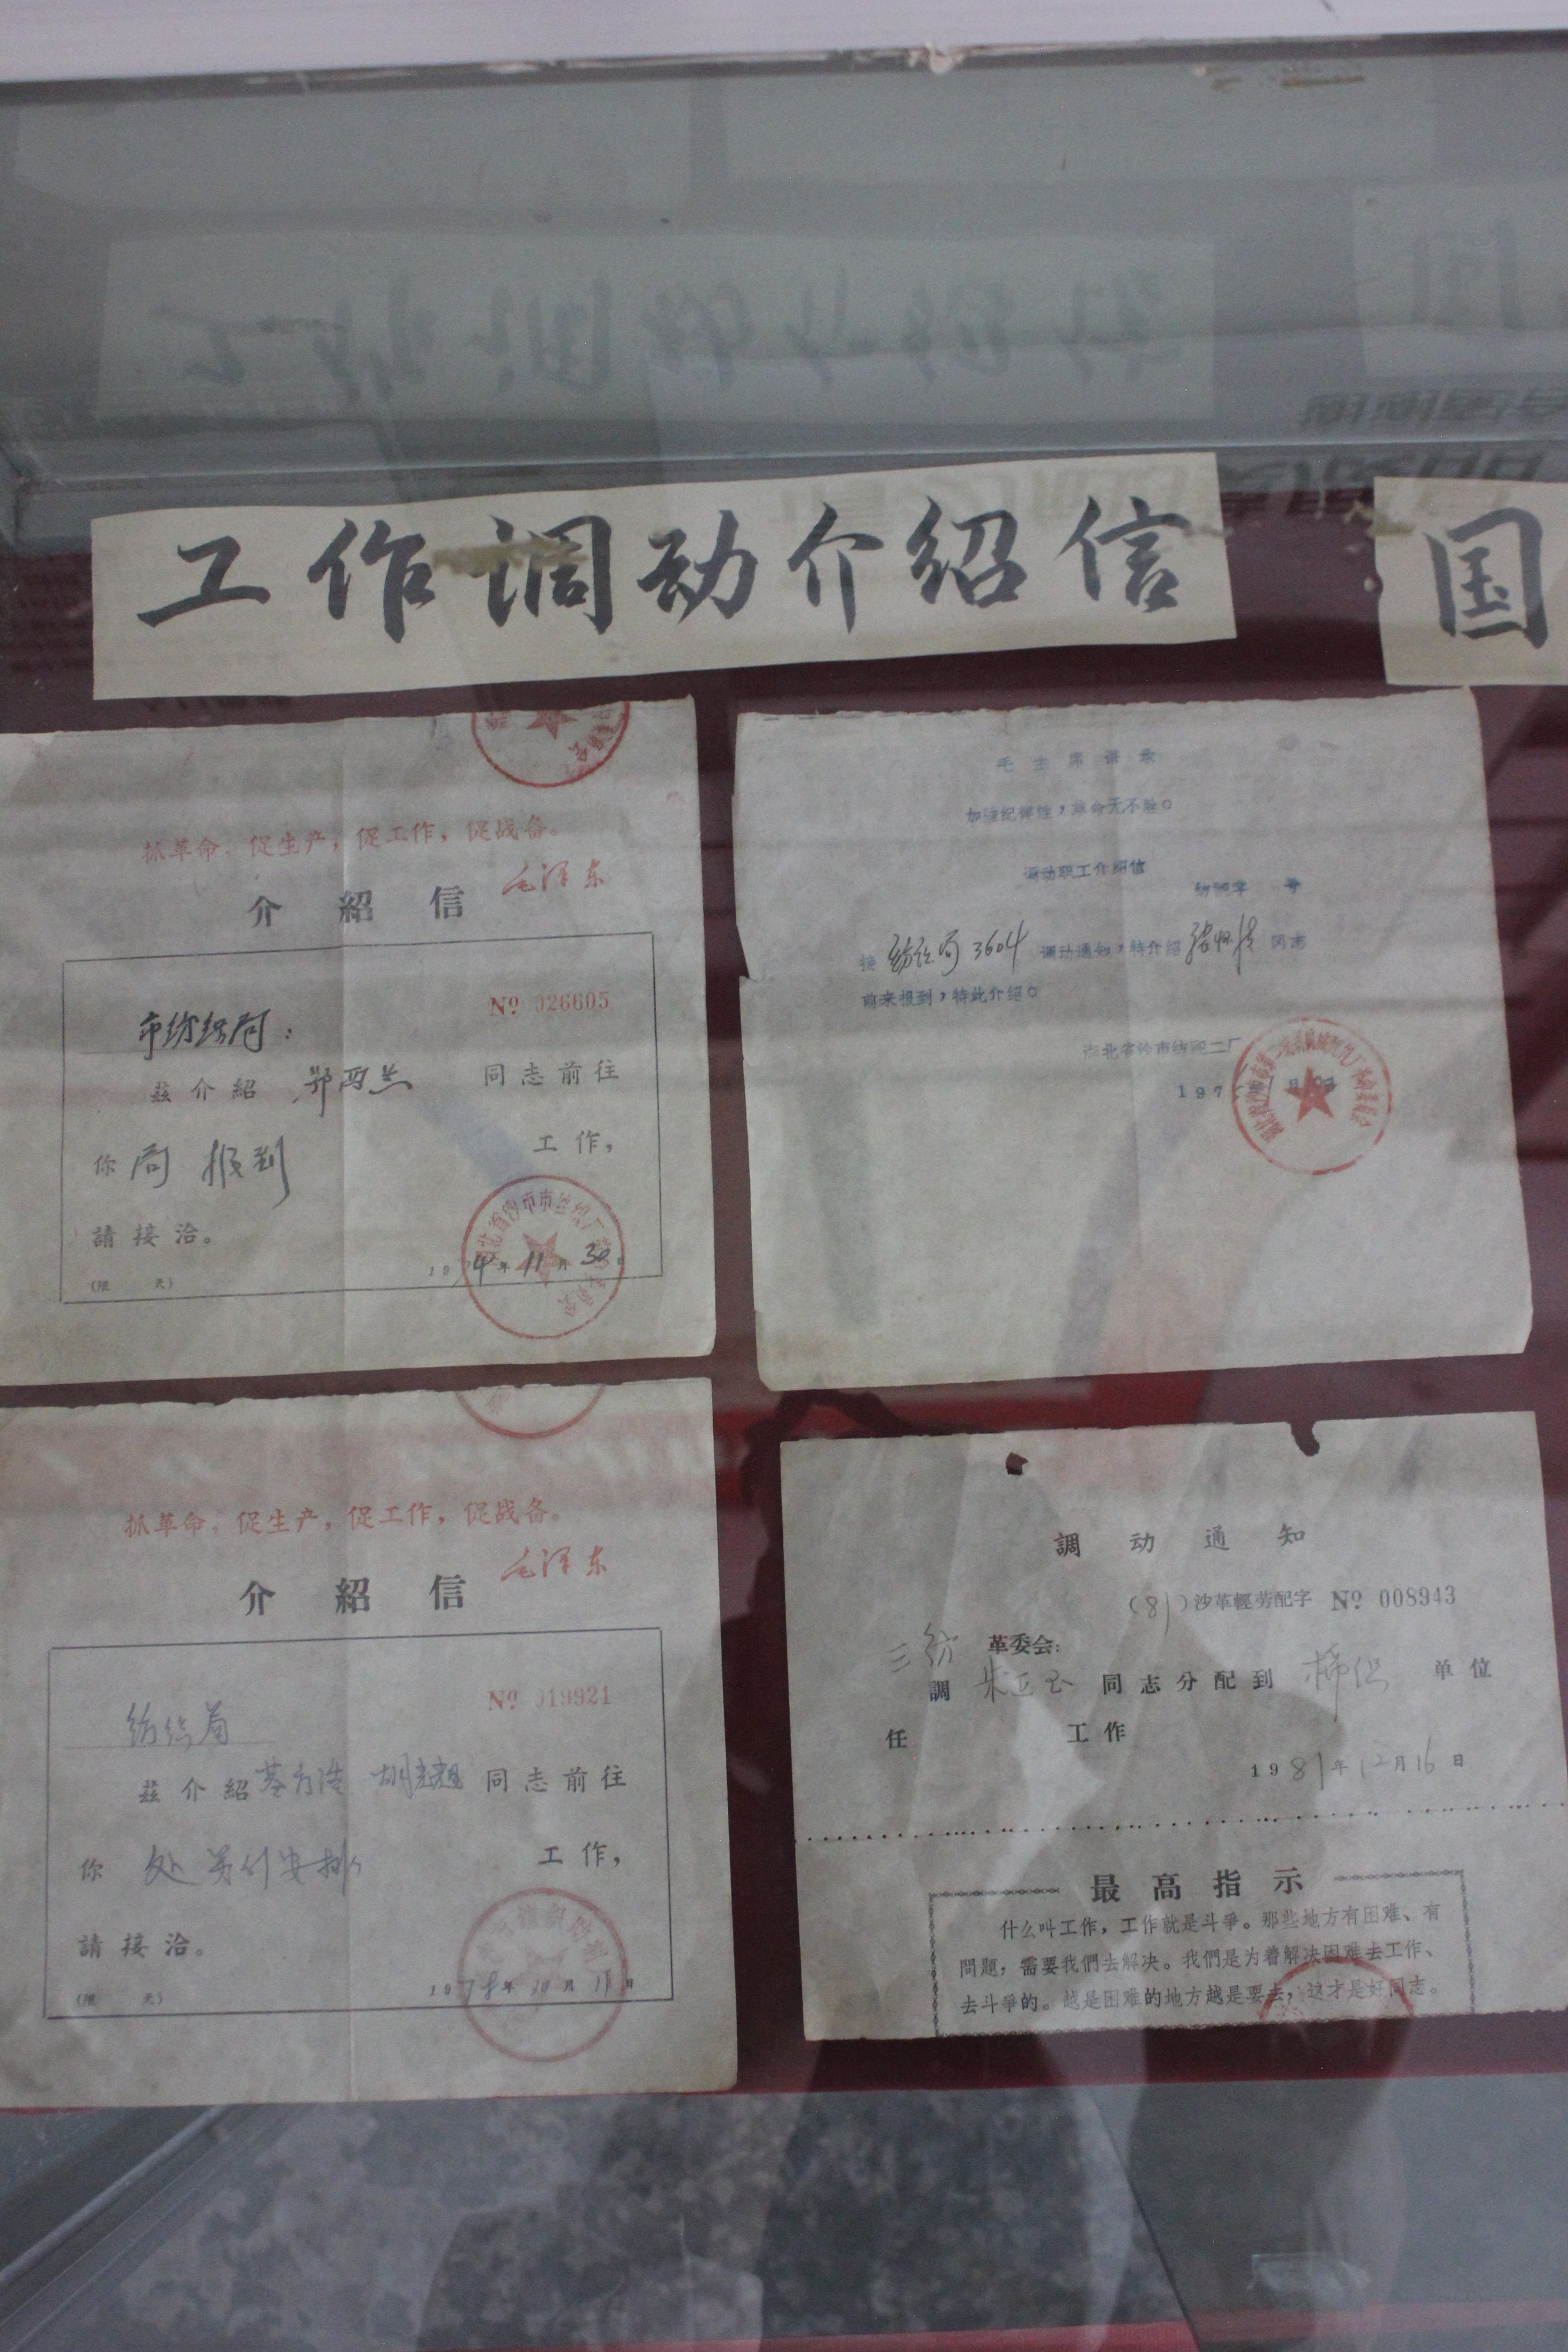 工作调动介绍信
国
抓革命,促生产,促工作,促战备。
毛泽东
介紹信
№ 026605
市纺织局:
茲介紹 同志前往
你局 报到 工作,
請接洽。
(限 天)
1974年11月30日
毛主席语录
加强纪律性,革命无不胜。
调动职工介绍信
纺配字 号
接纺织局3604调动通知,特介绍 同志
前来报到,特此介绍。
湖北省沙市纺配二厂
抓革命,促生产,促工作,促战备。
毛泽东
介紹信
№ 019921
纺织局
茲介紹 同志前往
你处 工作,
請接洽。
(限 天)
1978年10月11日
調动通知
(81)沙革輕劳配字 № 008943
三纺 革委会:
調 朱正玉 同志分配到 棉织 单位
任 工作
1981年12月16日
最高指示
什么叫工作,工作就是斗爭。那些地方有困难、有
問題,需要我們去解决。我們是为着解决困难去工作、
去斗爭的。越是困难的地方越是要去,这才是好同志。